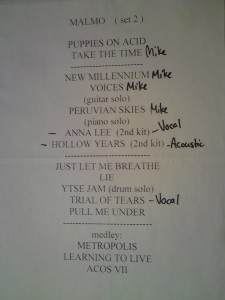 MALMO ( set 2 )
PUPPIES ON ACID
TAKE THE TIME Mike
------------------------
NEW MILLENNIUM Mike
VOICES Mike
(guitar solo)
PERUVIAN SKIES Mike
(piano solo)
~ ANNA LEE (2nd kit) - Vocal
~ HOLLOW YEARS (2nd kit) - Acoustic
------------------------
JUST LET ME BREATHE
LIE
YTSE JAM (drum solo)
TRIAL OF TEARS - Vocal
PULL ME UNDER
------------------------
medley:
METROPOLIS
LEARNING TO LIVE
ACOS VII